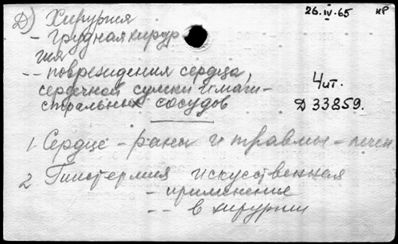 Д) Хирургия
26.IV-65 нР
- грудная хирур
гия
-- повреждения сердца,
сердечной сумки и маги-
стральных сосудов
Чит.
Д33859.
1 Сердце - раны и травмы - лечен
2 Гипотермия искуственная
- применение
-- в хирургии